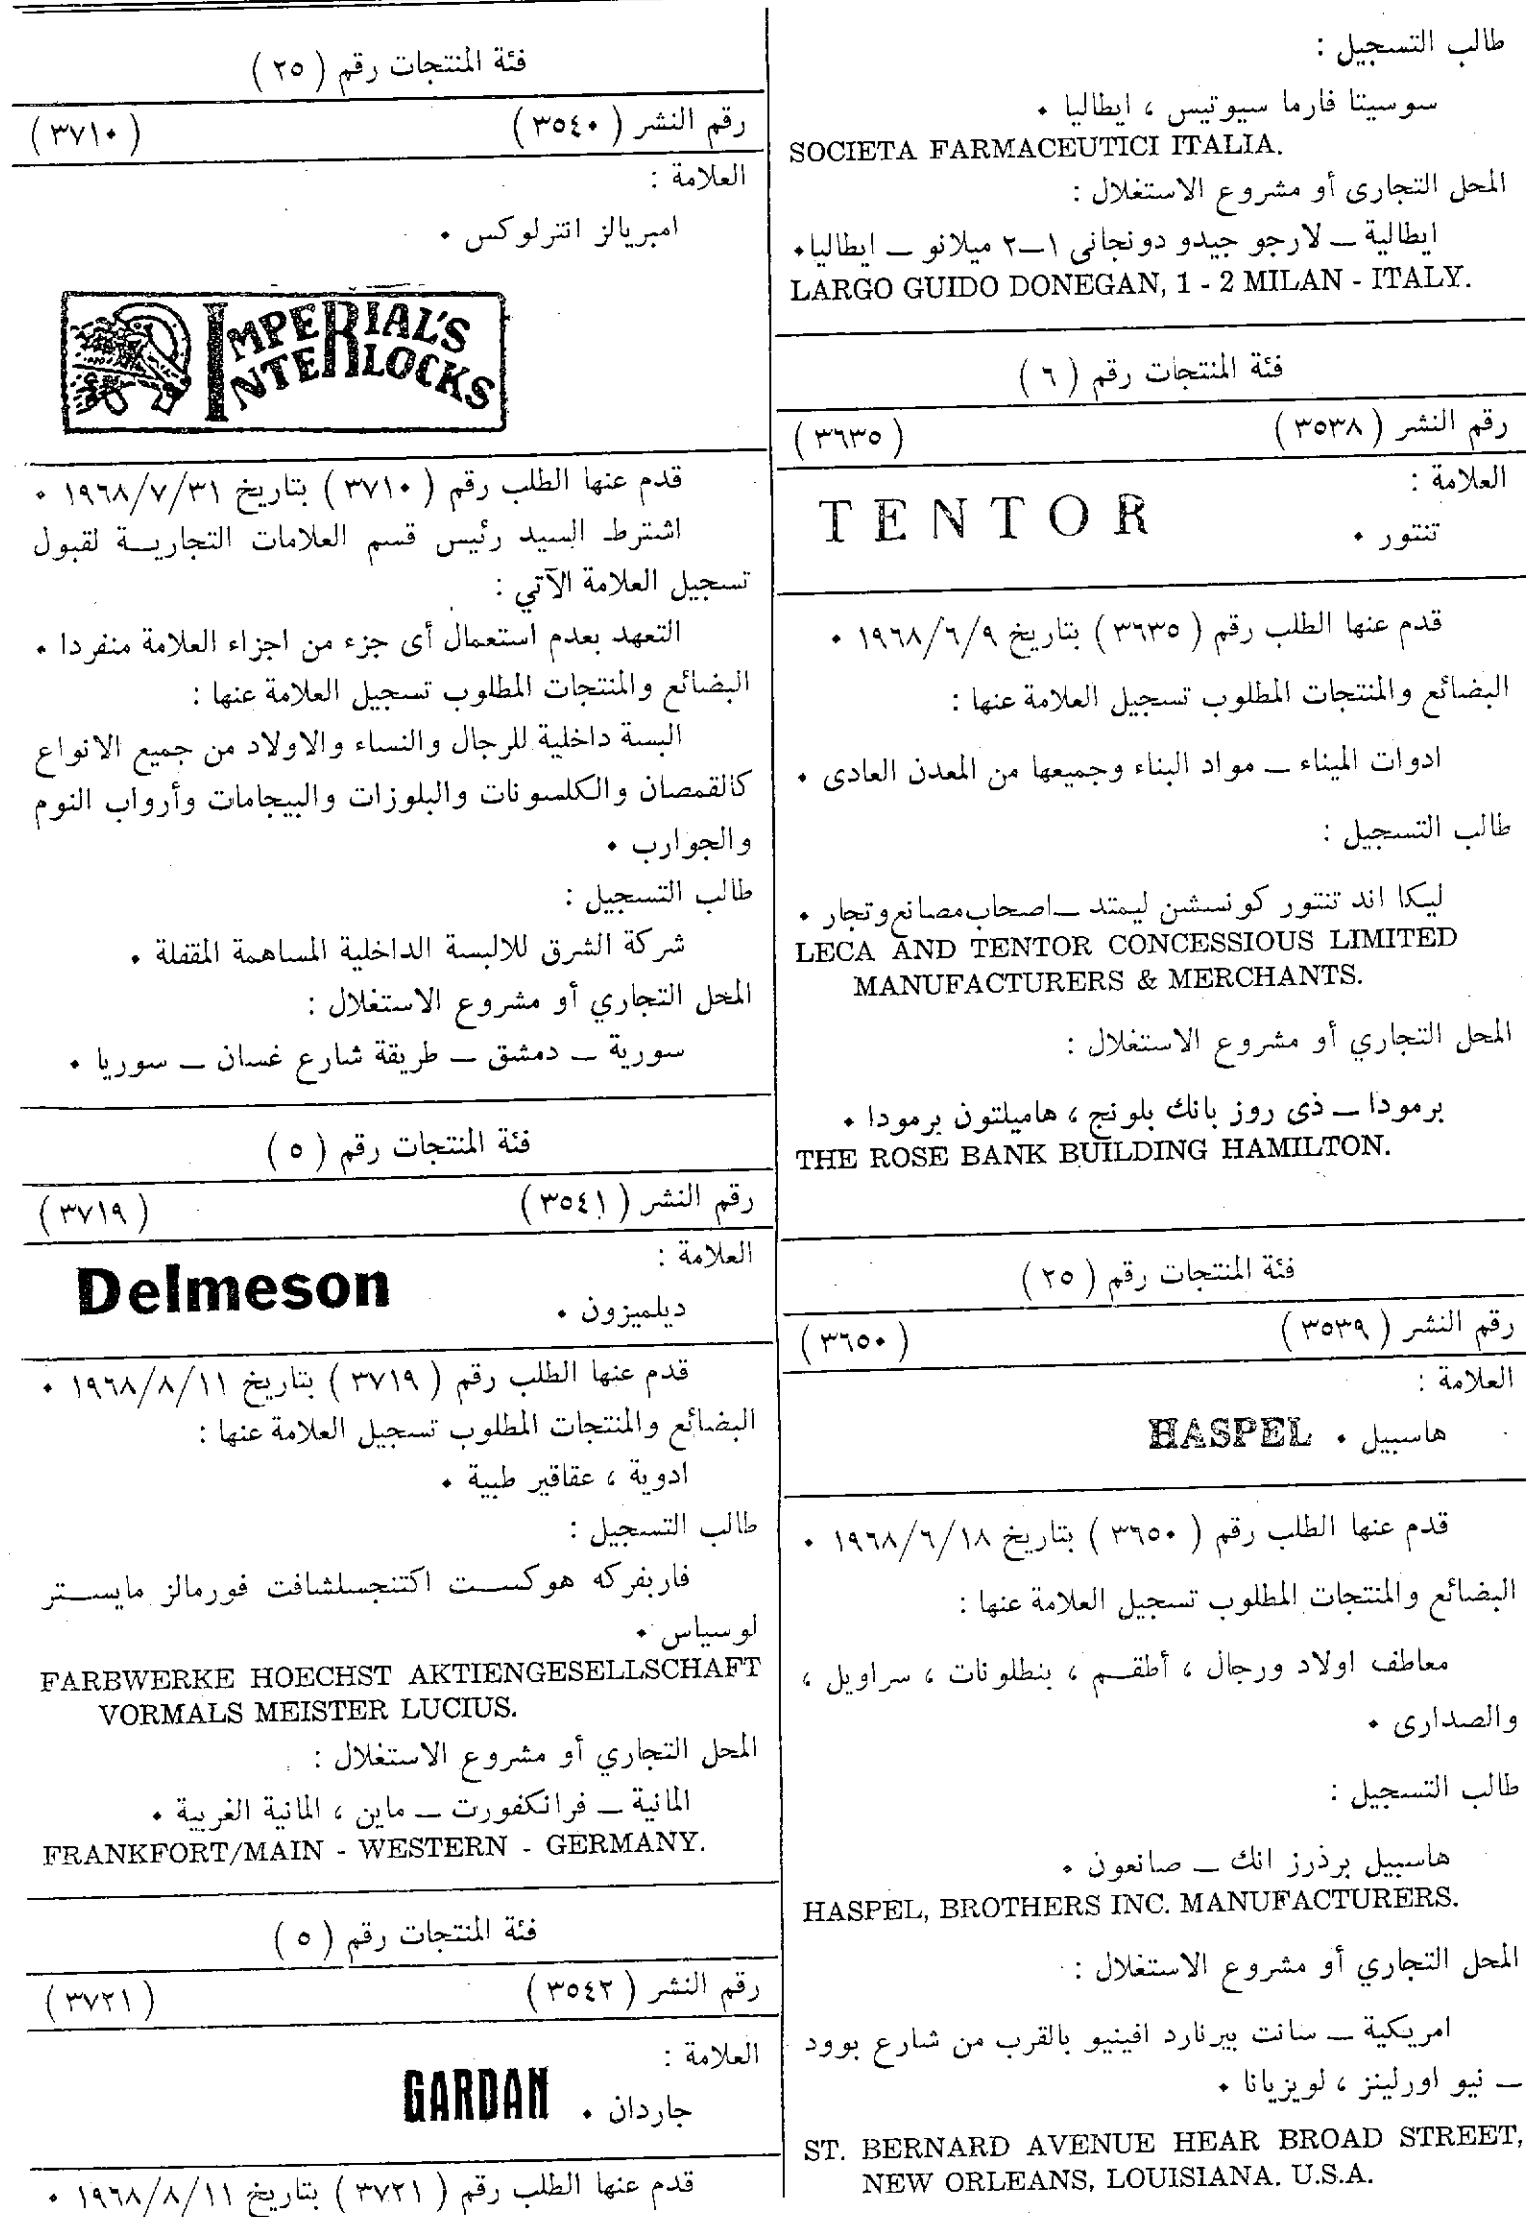 طالب التسجيل :
سوسيتا فارما سيوتيس ، ايطاليا .
SOCIETA FARMACEUTICI ITALIA.
المحل التجارى أو مشروع الاستغلال :
ايطالية ــ لارجو جيدو دونجانى ١ــ٢ ميلانو ــ ايطاليا.
LARGO GUIDO DONEGAN, 1 - 2 MILAN - ITALY.
فئة المنتجات رقم ( ٦ )
رقم النشر ( ٣٥٣٨ ) ( ٣٦٣٥ )
العلامة :
تنتور . TENTOR
قدم عنها الطلب رقم ( ٣٦٣٥ ) بتاريخ ١٩٦٨/٦/٩ .
البضائع والمنتجات المطلوب تسجيل العلامة عنها :
ادوات الميناء ــ مواد البناء وجميعها من المعدن العادى .
طالب التسجيل :
ليكا اند تنتور كونسشن ليمتد ــ اصحاب مصانع وتجار .
LECA AND TENTOR CONCESSIOUS LIMITED
MANUFACTURERS & MERCHANTS.
المحل التجاري أو مشروع الاستغلال :
برمودا ــ ذى روز بانك بلونج ، هاميلتون برمودا .
THE ROSE BANK BUILDING HAMILTON.
فئة المنتجات رقم ( ٢٥ )
رقم النشر ( ٣٥٣٩ ) ( ٣٦٥٠ )
العلامة :
هاسبيل . HASPEL
قدم عنها الطلب رقم ( ٣٦٥٠ ) بتاريخ ١٩٦٨/٦/١٨ .
البضائع والمنتجات المطلوب تسجيل العلامة عنها :
معاطف اولاد ورجال ، أطقم ، بنطلونات ، سراويل ،
والصدارى .
طالب التسجيل :
هاسبيل برذرز انك ــ صانعون .
HASPEL, BROTHERS INC. MANUFACTURERS.
المحل التجاري أو مشروع الاستغلال :
امريكية ــ سانت بيرنارد افينيو بالقرب من شارع بوود
ــ نيو اورلينز ، لويزيانا .
ST. BERNARD AVENUE HEAR BROAD STREET,
NEW ORLEANS, LOUISIANA. U.S.A.
فئة المنتجات رقم ( ٢٥ )
رقم النشر ( ٣٥٤٠ ) ( ٣٧١٠ )
العلامة :
امبريالز انترلوكس .
IMPERIAL'S
INTERLOCKS
قدم عنها الطلب رقم ( ٣٧١٠ ) بتاريخ ١٩٦٨/٧/٣١ .
اشترط السيد رئيس قسم العلامات التجارية لقبول
تسجيل العلامة الآتي :
التعهد بعدم استعمال أى جزء من اجزاء العلامة منفردا .
البضائع والمنتجات المطلوب تسجيل العلامة عنها :
البسة داخلية للرجال والنساء والاولاد من جميع الانواع
كالقمصان والكلسونات والبلوزات والبيجامات وأرواب النوم
والجوارب .
طالب التسجيل :
شركة الشرق للالبسة الداخلية المساهمة المقفلة .
المحل التجاري أو مشروع الاستغلال :
سورية ــ دمشق ــ طريقة شارع غسان ــ سوريا .
فئة المنتجات رقم ( ٥ )
رقم النشر ( ٣٥٤١ ) ( ٣٧١٩ )
العلامة :
ديلميزون . Delmeson
قدم عنها الطلب رقم ( ٣٧١٩ ) بتاريخ ١٩٦٨/٨/١١ .
البضائع والمنتجات المطلوب تسجيل العلامة عنها :
ادوية ، عقاقير طبية .
طالب التسجيل :
فاربفركه هوكست اكتنجسلشافت فورمالز مايستر
لوسياس .
FARBWERKE HOECHST AKTIENGESELLSCHAFT
VORMALS MEISTER LUCIUS.
المحل التجاري أو مشروع الاستغلال :
المانية ــ فرانكفورت ــ ماين ، المانية الغربية .
FRANKFORT/MAIN - WESTERN - GERMANY.
فئة المنتجات رقم ( ٥ )
رقم النشر ( ٣٥٤٢ ) ( ٣٧٢١ )
العلامة :
جاردان . GARDAN
قدم عنها الطلب رقم ( ٣٧٢١ ) بتاريخ ١٩٦٨/٨/١١ .